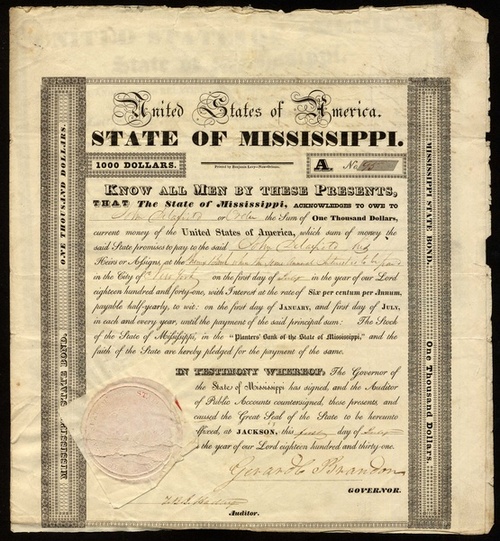 United States of America.
STATE OF MISSISSIPPI.
1000 DOLLARS.
Printed by Benjamin Levy—New-Orleans.
A. No.
KNOW ALL MEN BY THESE PRESENTS,
THAT The State of Mississippi, ACKNOWLEDGES TO OWE TO
John Delafield or Order the Sum of One Thousand Dollars,
current money of the United States of America, which sum of money the
said State promises to pay to the said John Delafield his
Heirs or Assigns, at the
in the City of New York on the first day of July in the year of our Lord
eighteen hundred and forty-one, with Interest at the rate of Six per centum per Annum,
payable half-yearly, to wit: on the first day of JANUARY, and first day of JULY,
in each and every year, until the payment of the said principal sum: The Stock
of the State of Mississippi, in the "Planters' Bank of the State of Mississippi," and the
faith of the State are hereby pledged for the payment of the same.
IN TESTIMONY WHEREOF, The Governor of
the State of Mississippi has signed, and the Auditor
of Public Accounts countersigned, these presents, and
caused the Great Seal of the State to be hereunto
affixed, at JACKSON, this day of
the year of our Lord eighteen hundred and thirty-one.
Gerard C Brandon
GOVERNOR.
Auditor.
ONE THOUSAND DOLLARS.
MISSISSIPPI STATE BOND.
MISSISSIPPI STATE BOND.
One Thousand Dollars.